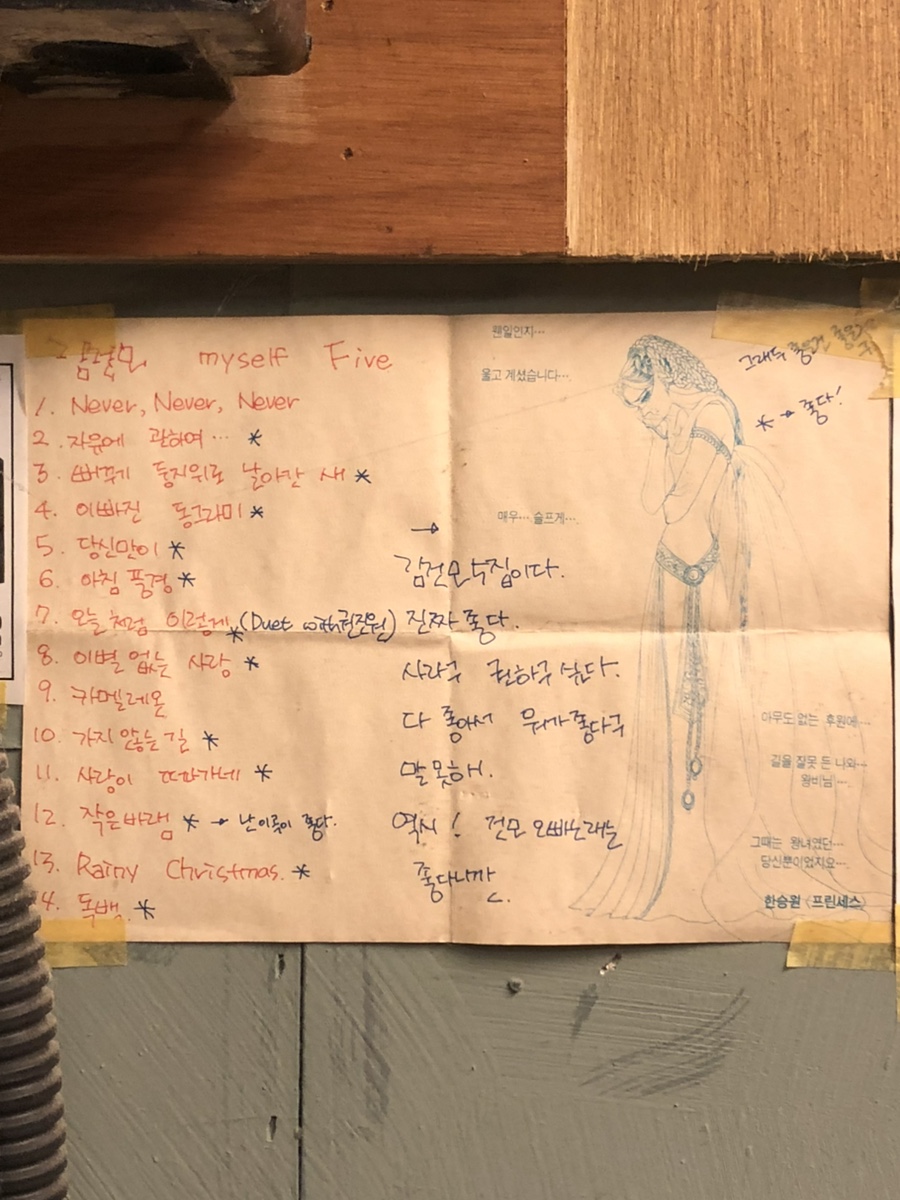 김건모 myself Five
1. Never, Never, Never
2. 자유에 관하여… *
3. 뻐꾸기 둥지위로 날아간 새 *
4. 이빠진 동그라미 *
5. 당신만이 *
6. 아침 풍경 *
7. 오늘처럼 이렇게 * (Duet with권진원)
8. 이별 없는 사랑 *
9. 카멜레온
10. 가지 않는 길 *
11. 사랑이 떠나가네 *
12. 작은바램 * → 난 이곡이 좋당.
13. Rainy Christmas. *
14. 독백. *
→
김건모 5집이다.
진짜 좋다.
사라구 권하구 싶다.
다 좋아서 뭐가좋다구
말 못해.
역시! 건모 오빠노래는
좋다니깐.
웬일인지…
울고 계셨습니다…
매우… 슬프게…
그래두 좋은건
* → 좋다!
아무도 없는 후원에…
길을 잘못 든 나와…
왕비님…
그때는 왕녀였던…
당신뿐이었지요…
한승원 <프린세스>